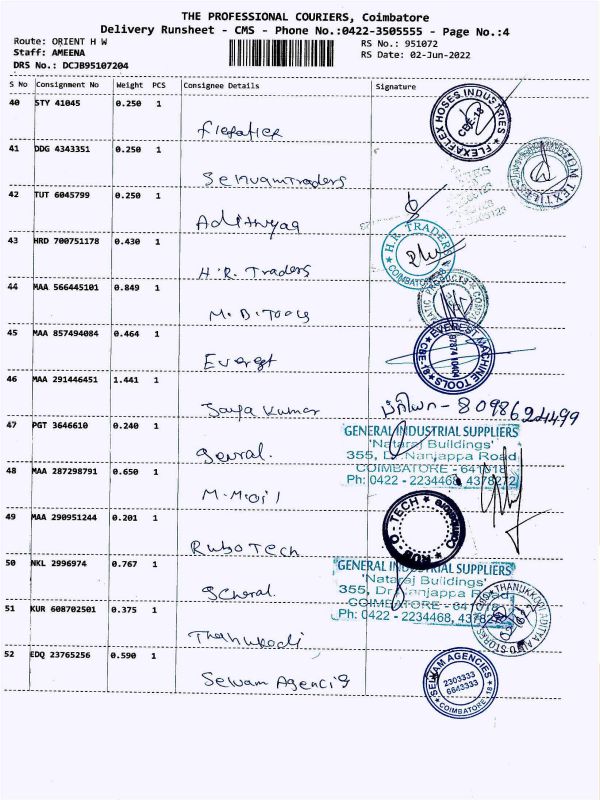 THE PROFESSIONAL COURIERS, Coimbatore
Delivery Runsheet - CMS - Phone No.:0422-3505555 - Page No.:4
Route: ORIENT H W
RS No.: 951072
Staff: AMEENA
RS Date: 02-Jun-2022
DRS No.: DCJB95107204
S No Consignment No Weight PCS Consignee Details Signature
40 STY 41045 0.250 1
FLEXAFLEX HOSES INDUSTRIES CBE-18
41 DDG 4343351 0.250 1
Selvam Traders
TEXTILES
42 TUT 6045799 0.250 1
Adithyaa
43 HRD 700751178 0.430 1
H.R. Traders
H.R. TRADERS COIMBATORE
44 MAA 566445101 0.849 1
M.B. Tools
45 MAA 857494084 0.464 1
Everest
EVEREST MACHINE TOOLS CBE-18 97874 10404
46 MAA 291446451 1.441 1
Jaya Kumar
47 PGT 3646610 0.240 1
Genral.
GENERAL INDUSTRIAL SUPPLIERS
'Nataraj Buildings'
355, Dr. Nanjappa Road
COIMBATORE - 641018
Ph: 0422 - 2234468, 4378272
48 MAA 287298791 0.650 1
M.M.Oil
49 MAA 290951244 0.201 1
Rubo Tech
RUBO-TECH Coimbatore
50 NKL 2996974 0.767 1
General.
GENERAL INDUSTRIAL SUPPLIERS
'Nataraj Buildings'
355, Dr. Nanjappa Road,
COIMBATORE - 641018
Ph: 0422 - 2234468, 4378272
51 KUR 608702501 0.375 1
Thanukodi
52 EDQ 23765256 0.590 1
Selvam Agencis
SELVAM AGENCIES 2303333 6643333 COIMBATORE-18